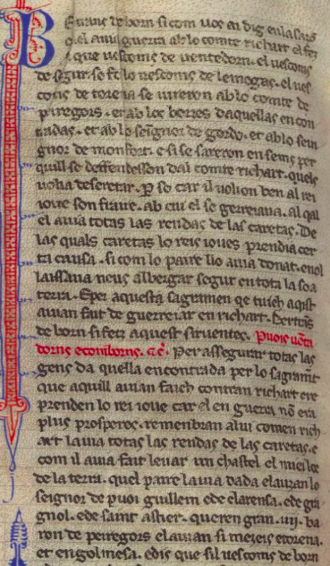 Bertrans de born si com uos ai dig en la sazo
q el auia guerra ab lo comte richart el fez
si que uescoms de uentedorn. el uescoms
de segur so fo lo uescoms de lemogas. el ues
coms de torena se iureron ab lo comte de
peiregors. et ab los borzes daquellas encon
tradas. et ab lo seignor de gordo. et ab lo sein
gnor de monfort. e si se sarreron ensems per
quill se deffendesson dal comte richart. quels
uolia deseretar. P so car il uolion ben al rei
ioue son fraire. ab cui el se gerreiaua. al qal
el auia totas las rendas de las caretas. De
las quals caretas lo reis ioues prendia cer
ta causa. si com lo paire lio auia donat. e nol
laissaua neus albergar segur en tota la soa
terra. Eper aquest sagramen qe tuich aqist
auian fait de guerreiar en richart. Bertrans
de born si fetz aquest siruentes. Puois uenta
dorns ecomborns. ec̄. Per assegurar totas las
gens da quella encontrada per lo sagramt
que aquill auian faich contra en richart e re
prenden lo rei ioue car el en guerra nō era
plus prosperos. remembran a lui comen rich
art lauia totas las rendas de las caretas. e
com il auia fait leuar un chastel el miei loc
de la terra. quel paire lauia dada e lauzan lo
seignor de puoi guillem e de clarensa. e de gra
gnol. e de saint astier. queren gran .iiij. ba
ron de peiregors e lauzan si mezeis e torena.
et engolmesa. e dis que sil uescoms de born